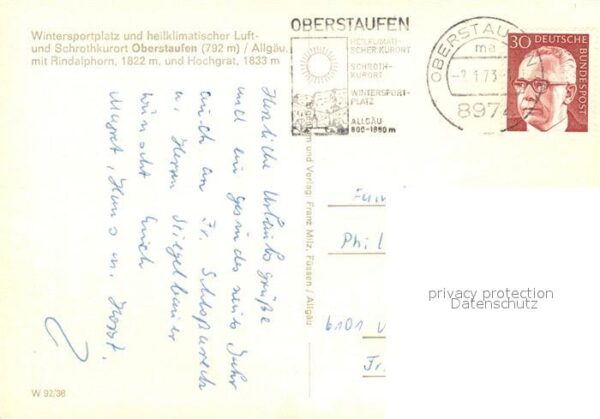 Wintersportplatz und heilklimatischer Luft-
und Schrothkurort Oberstaufen (792 m) / Allgäu,
mit Rindalphorn, 1822 m, und Hochgrat, 1833 m
OBERSTAUFEN
HEILKLIMATI-
SCHER KURORT
SCHROTH-
KURORT
WINTERSPORT-
PLATZ
ALLGÄU
800-1860 m
OBERSTAU
ma
-2.1.73-
897
30 DEUTSCHE
BUNDESPOST
Herzliche Urlaubsgrüße
und ein gesundes neues Jahr
auch an Fr.
u. Herrn
wünscht Euch
Hans u. Horst.
und Verlag: Franz Milz, Füssen / Allgäu
Fam
Phil
6101
Fr
privacy protection
Datenschutz
W 92/36